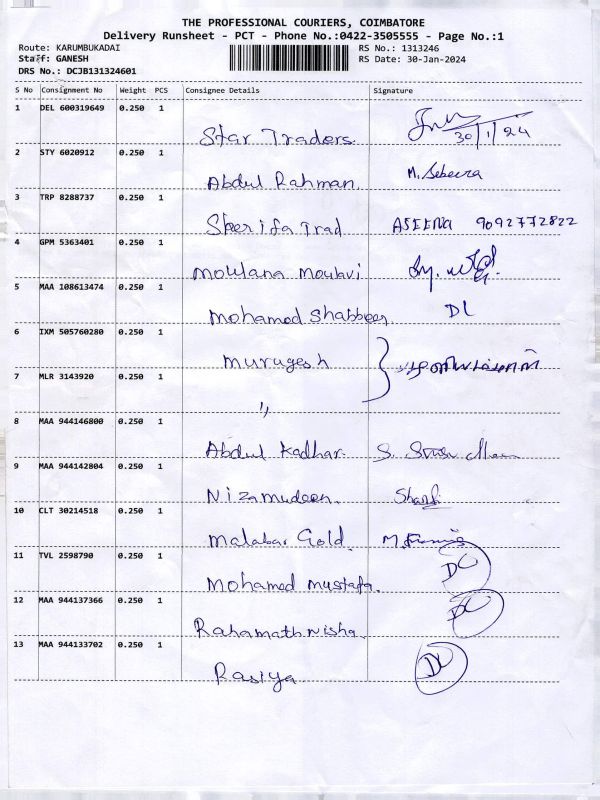 THE PROFESSIONAL COURIERS, COIMBATORE
Delivery Runsheet - PCT - Phone No.:0422-3505555 - Page No.:1
Route: KARUMBUKADAI RS No.: 1313246
Staff: GANESH RS Date: 30-Jan-2024
DRS No.: DCJB131324601
S No Consignment No Weight PCS Consignee Details Signature
1 DEL 600319649 0.250 1
Star Traders 30/1/24
2 STY 6020912 0.250 1
Abdul Rahman M.
3 TRP 8288737 0.250 1
Sherifa Trad ASEENA 9092772822
4 GPM 5363401 0.250 1
Moulana Moulavi
5 MAA 108613474 0.250 1
Mohamed Shabbeer DL
6 IXM 505760280 0.250 1
Murugesh
7 MLR 3143920 0.250 1
"
8 MAA 944146800 0.250 1
Abdul Kadhar. S.
9 MAA 944142804 0.250 1
Nizamudeen.
10 CLT 30214518 0.250 1
Malabar Gold. M.
11 TVL 2598790 0.250 1
Mohamed Mustafa. DL
12 MAA 944137366 0.250 1
Rahamathnisha. DL
13 MAA 944133702 0.250 1
Rasiya DL